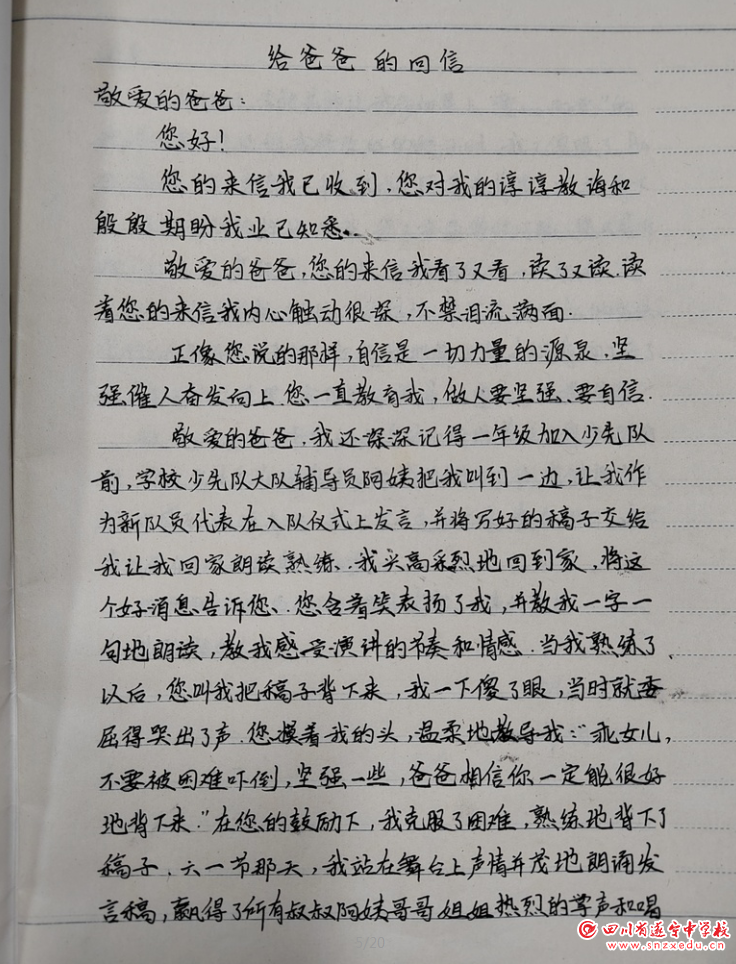 给爸爸的回信
敬爱的爸爸:
您好!
您的来信我已收到,您对我的谆谆教诲和
殷殷期盼我业已知悉..
敬爱的爸爸,您的来信我看了又看,读了又读.读
着您的来信我内心触动很深,不禁泪流满面.
正像您说的那样,自信是一切力量的源泉.坚
强催人奋发向上.您一直教育我,做人要坚强、要自信.
敬爱的爸爸,我还深深记得一年级加入少先队
前,学校少先队大队辅导员阿姨把我叫到一边,让我作
为新队员代表在入队仪式上发言,并将写好的稿子交给
我让我回家朗读熟练.我兴高采烈地回到家,将这
个好消息告诉您、您含着笑表扬了我,并教我一字一
句地朗读,教我感受演讲的节奏和情感.当我熟练了
以后,您叫我把稿子背下来,我一下傻了眼,当时就委
屈得哭出了声.您摸着我的头,温柔地教导我:"乖女儿,
不要被困难吓倒,坚强一些,爸爸相信你一定能很好
地背下来."在您的鼓励下,我克服了困难,熟练地背下了
稿子.六一节那天,我站在舞台上声情并茂地朗诵发
言稿,赢得了所有叔叔阿姨哥哥姐姐热烈的掌声和喝
5/20
四川省遂宁中学校
www.snzxedu.cn